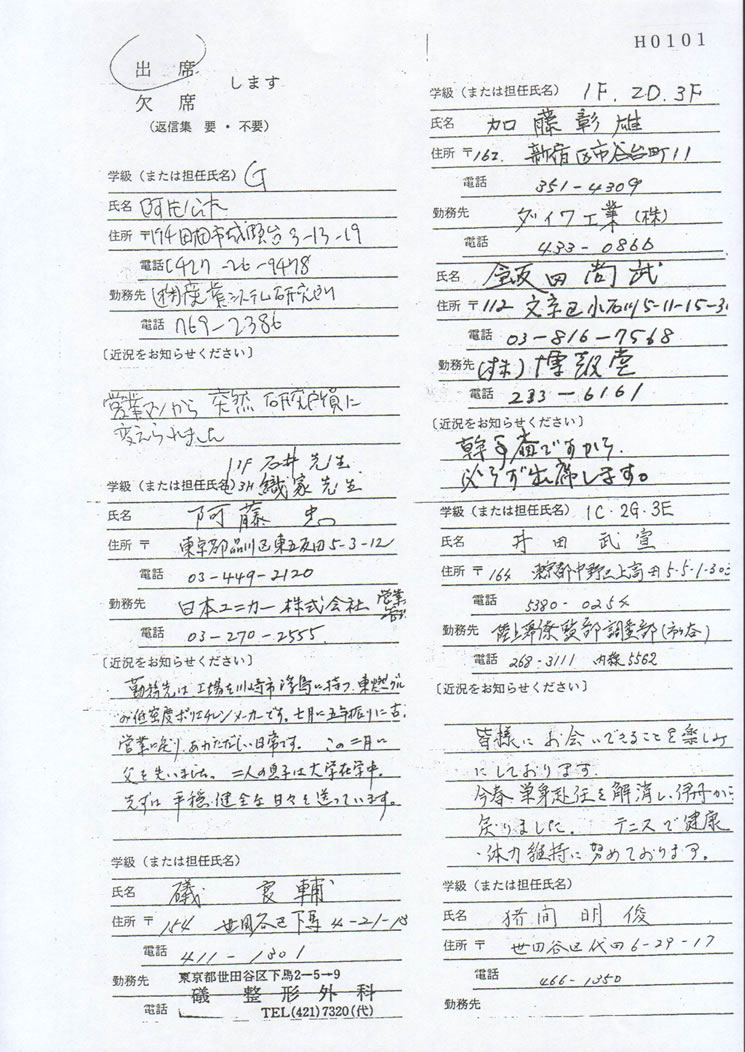 H0101
出席
します
欠席
(返信集 要・不要)
学級(または担任氏名) G
氏名
住所 〒194 3-13-19
電話 0427-26-9478
勤務先 (株)産業システム研究所
電話 769-2386
〔近況をお知らせください〕
営業マンから 突然 研究所員に
変えられました
1F 石井先生
学級(または担任氏名) 3H 織家先生
氏名 阿藤
住所 〒 東京都品川区東五反田5-3-12
電話 03-449-2120
勤務先 日本ユニカー株式会社 営業
電話 03-270-2555
〔近況をお知らせください〕
勤務先は工場を川崎市浮島に持つ、東燃グル
の低密度ポリエチレンメーカーです。七月に五年振りに古
営業に戻り、あわただしい日常です。 この二月に
父を失いました。 二人の息子は大学在学中。
まずは 平穏、健全な日々を送っています。
学級(または担任氏名)
氏名 礒 良輔
住所 〒154 世田谷区下馬 4-21-18
電話 411-1301
勤務先 東京都世田谷区下馬2-5-9
礒整形外科
電話 TEL(421)7320(代)
学級(または担任氏名) 1F. 2D. 3F
氏名 加藤彰雄
住所 〒162. 新宿区市谷台町11
電話 351-4309
勤務先 ダイワ工業(株)
電話 433-0866
氏名 飯田尚武
住所 〒112 文京区小石川5-11-15-3
電話 03-816-7568
勤務先 (株)博報堂
電話 233-6161
〔近況をお知らせください〕
幹事ですから
必らず出席します。
学級(または担任氏名) 1C・2G・3E
氏名 井田武宣
住所 〒164 東京都中野区上高田5-5-1-303
電話 5380-0254
勤務先 陸上幕僚監部調査部(市ヶ谷)
電話 268-3111 内線5562
〔近況をお知らせください〕
皆様にお会いできることを楽しみ
にしております。
今春 単身赴任を解消し、伊丹から
戻りました。 テニスで健康
・体力維持に努めております。
学級(または担任氏名)
氏名 猪間明俊
住所 〒 世田谷区代田6-29-17
電話 466-1350
勤務先